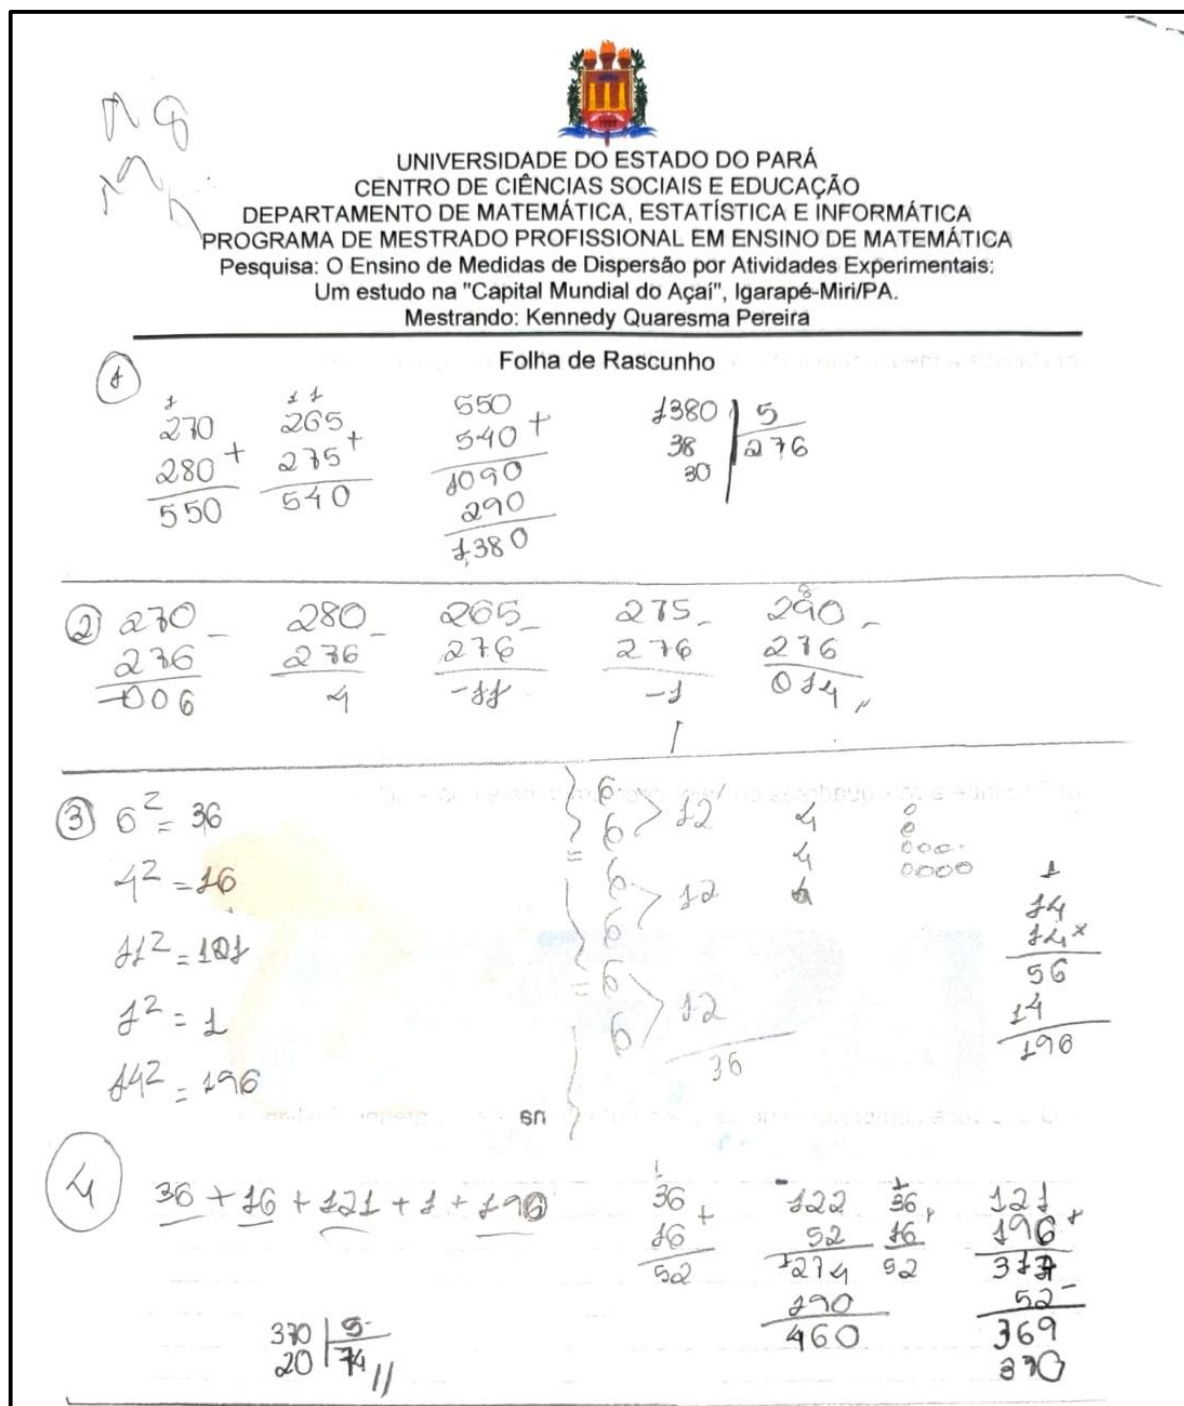 UNIVERSIDADE DO ESTADO DO PARÁ
CENTRO DE CIÊNCIAS SOCIAIS E EDUCAÇÃO
DEPARTAMENTO DE MATEMÁTICA, ESTATÍSTICA E INFORMÁTICA
PROGRAMA DE MESTRADO PROFISSIONAL EM ENSINO DE MATEMÁTICA
Pesquisa: O Ensino de Medidas de Dispersão por Atividades Experimentais:
Um estudo na "Capital Mundial do Açaí", Igarapé-Miri/PA.
Mestrando: Kennedy Quaresma Pereira
Folha de Rascunho
1
1 1 1 550 1380 5
270 265 540 + 38 276
280 + 275 + 1090 30
550 540 290
1380
2 270 - 280 - 265 - 275 - 290 -
276 276 276 276 276
-006 4 -11 -1 014
3 6² = 36
4² = 16
11² = 121
1² = 1
14² = 196
6 6 12
6 6 12
6 6 12
36
4
4
1
14
14 x
56
14
196
4 36 + 16 + 121 + 1 + 196
36 + 122 36 + 121 +
16 52 16 196
52 274 52 317
190 52
460 369
370
370 5
20 74